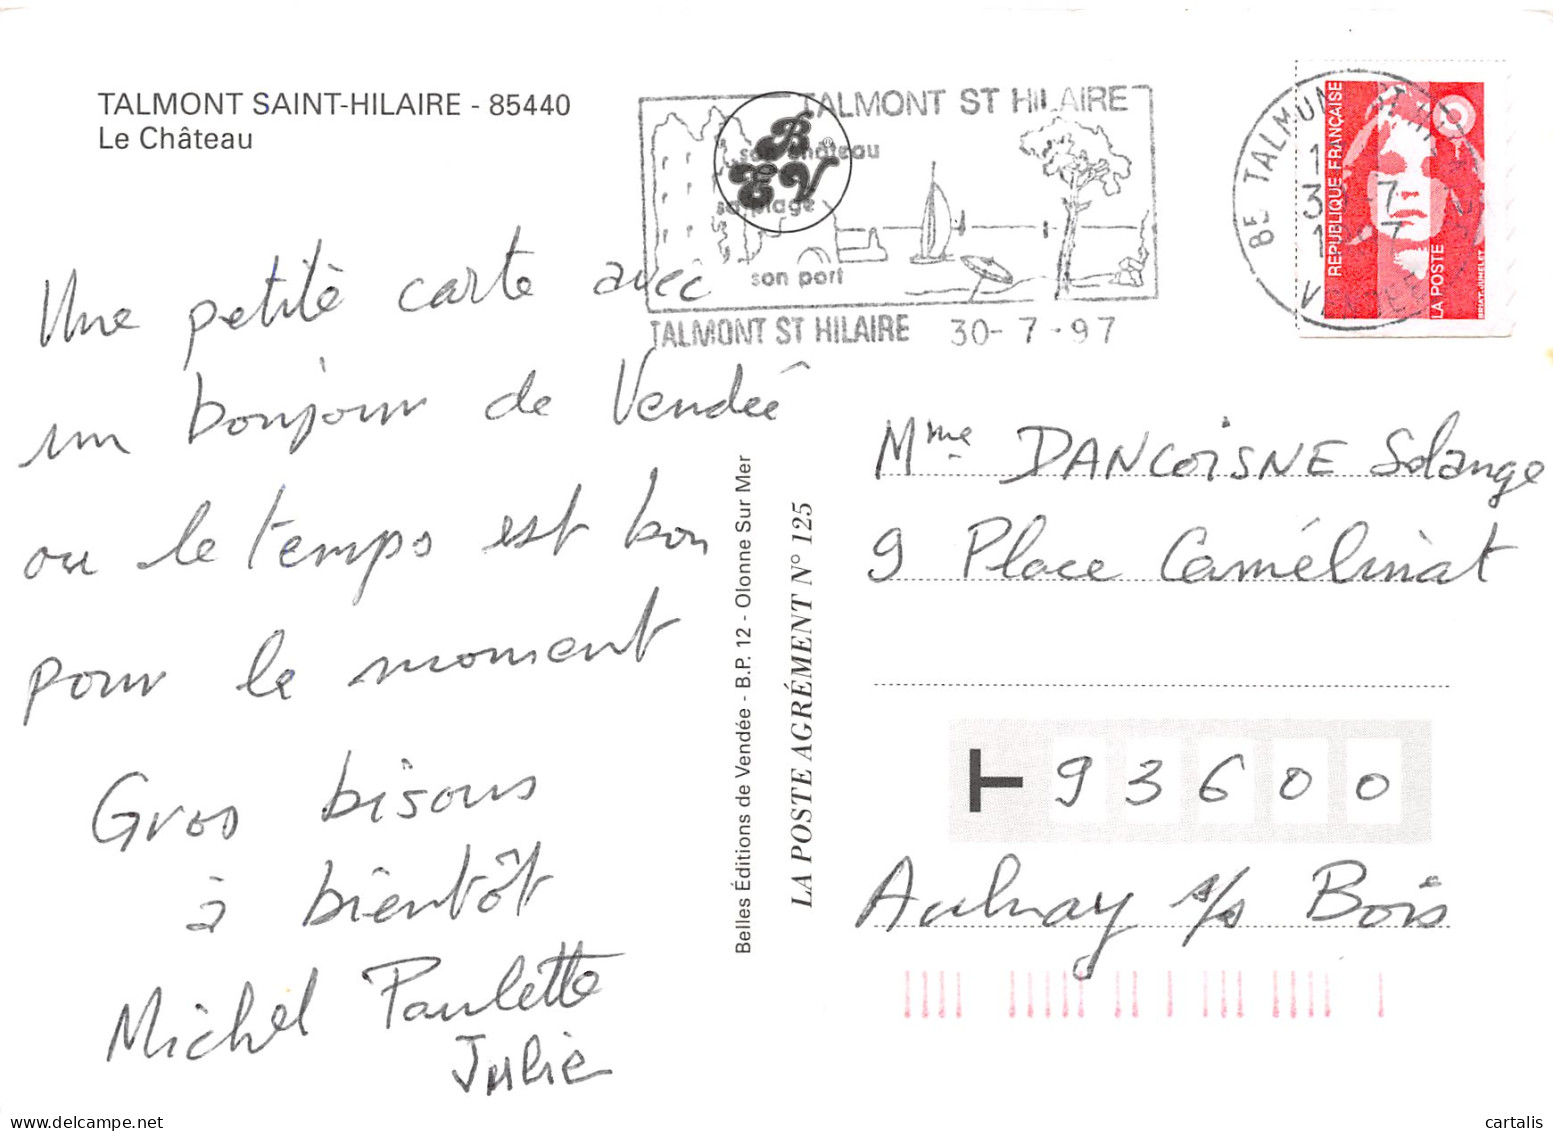 TALMONT SAINT-HILAIRE - 85440
Le Château
TALMONT ST HILAIRE
son château
sa plage
son port
TALMONT ST HILAIRE 30-7-97
BEV
RÉPUBLIQUE FRANÇAISE
LA POSTE
BRIAT-JUMELET
Une petite carte avec
un bonjour de Vendée
ou le temps est bon
pour le moment
Gros bisous
à bientôt
Michel Paulette
Julie
Belles Éditions de Vendée - B.P. 12 - Olonne Sur Mer
LA POSTE AGRÉMENT N° 125
Mme DANCOISNE Solange
9 Place Camélinat
T 93600
Aulnay s/s Bois
cartalis